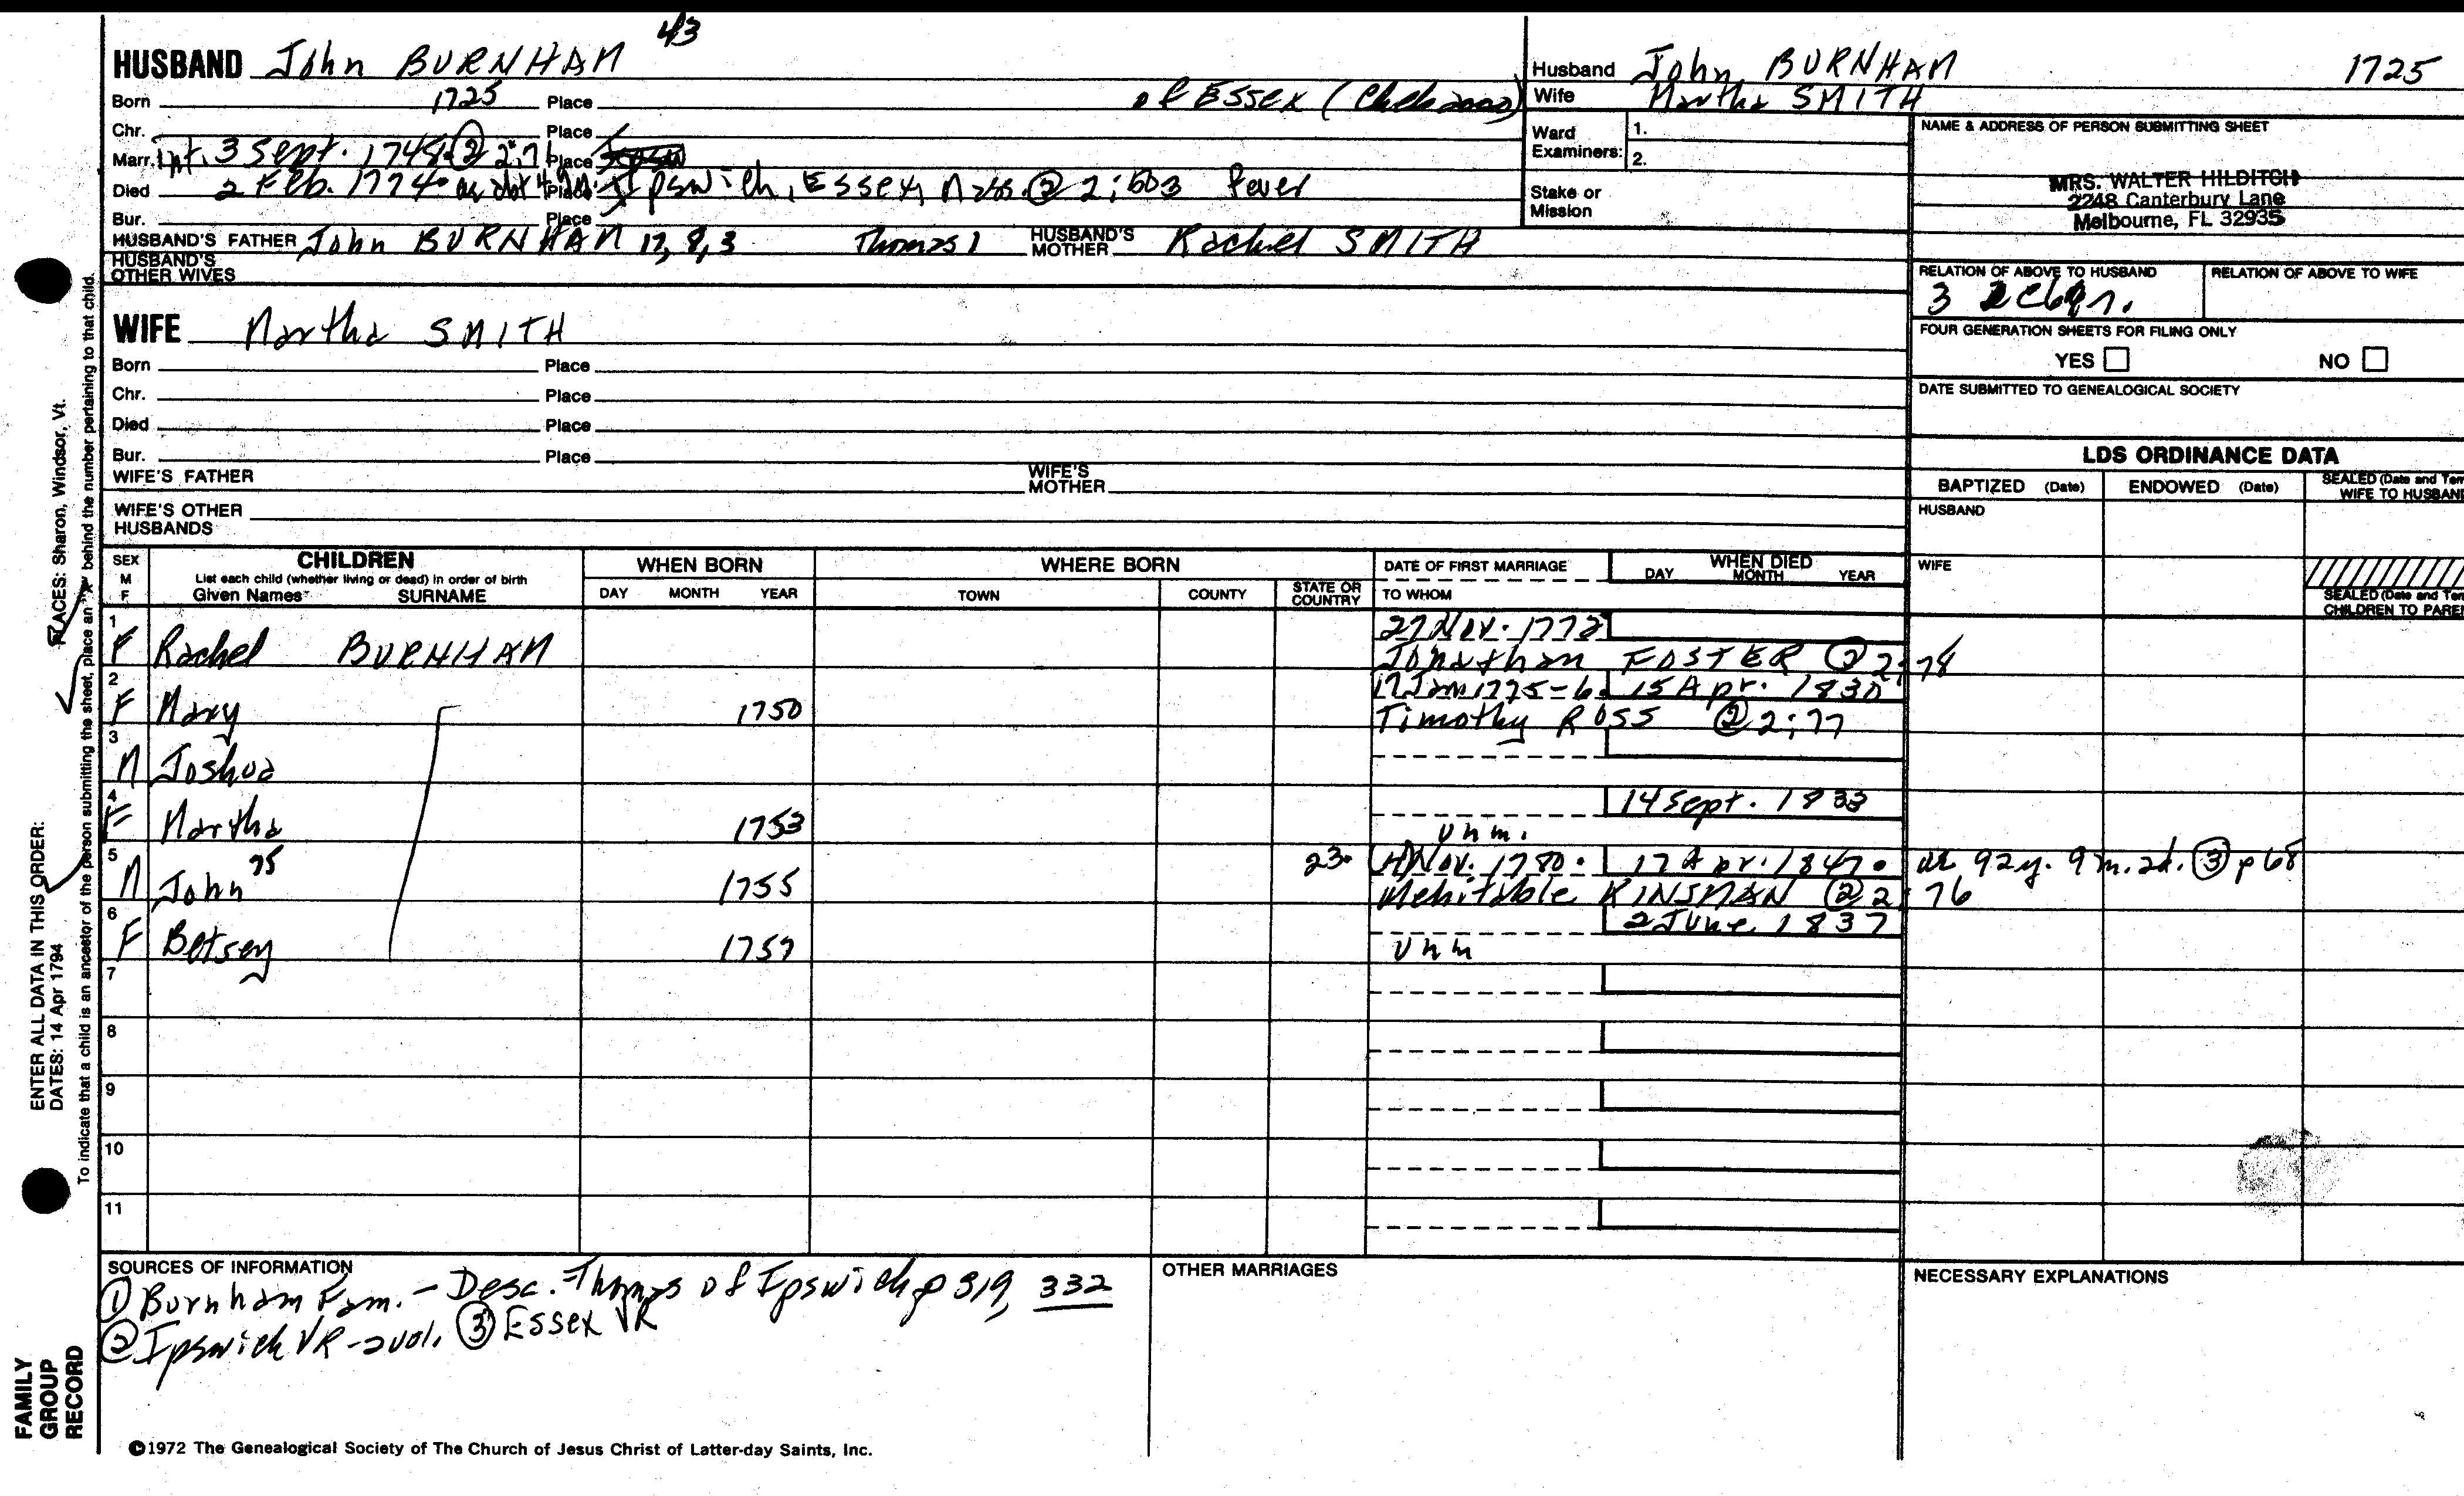 43
HUSBAND John BURNHAM
Born 1725 Place of Essex (Chebacco)
Chr. Place
Marr. Int. 3 Sept. 1748 ② 2:76 Place
Died 2 Feb. 1774 Place Ipswich, Essex, Mass. ② 2:503 fever
Bur. Place
HUSBAND'S FATHER John BURNHAM 12, 8, 3 Thomas 1 HUSBAND'S MOTHER Rachel SMITH
HUSBAND'S OTHER WIVES
WIFE Martha SMITH
Born Place
Chr. Place
Died Place
Bur. Place
WIFE'S FATHER WIFE'S MOTHER
WIFE'S OTHER HUSBANDS
Husband John BURNHAM 1725
Wife Martha SMITH
Ward Examiners: 1.
2.
Stake or Mission
NAME & ADDRESS OF PERSON SUBMITTING SHEET
MRS. WALTER HILDITCH
2248 Canterbury Lane
Melbourne, FL 32935
RELATION OF ABOVE TO HUSBAND RELATION OF ABOVE TO WIFE
3
FOUR GENERATION SHEETS FOR FILING ONLY
YES NO
DATE SUBMITTED TO GENEALOGICAL SOCIETY
LDS ORDINANCE DATA
BAPTIZED (Date) ENDOWED (Date) SEALED (Date and Tem
WIFE TO HUSBAND
HUSBAND
WIFE
SEALED (Date and Tem
CHILDREN TO PAREN
SEX M F
CHILDREN
List each child (whether living or dead) in order of birth
Given Names SURNAME
WHEN BORN
DAY MONTH YEAR
WHERE BORN
TOWN COUNTY STATE OR COUNTRY
DATE OF FIRST MARRIAGE
TO WHOM
WHEN DIED
DAY MONTH YEAR
1 F Rachel BURNHAM 27 Nov. 1772
Jonathan FOSTER ② 2:78
2 F Mary 1750 17 Jan 1775-6 15 Apr. 1830
Timothy ROSS ② 2:77
3 M Joshua
4 F Martha 1753 14 Sept. 1833
unm.
5 M John 75 1755 23 Nov. 1780 17 Apr. 1847 ae 92y. 9m. 2d. ③ p68
Mehitable KINSMAN ② 2:76
6 F Betsey 1757 2 June 1837
unm
7
8
9
10
11
SOURCES OF INFORMATION
① Burnham Fam. - Desc. Thomas of Ipswich p 319, 332
② Ipswich VR - 2 vol. ③ Essex VR
OTHER MARRIAGES
NECESSARY EXPLANATIONS
©1972 The Genealogical Society of The Church of Jesus Christ of Latter-day Saints, Inc.
FAMILY GROUP RECORD
ENTER ALL DATA IN THIS ORDER:
DATES: 14 Apr 1794
PLACES: Sharon, Windsor, Vt.
To indicate that a child is an ancestor of the person submitting the sheet, place an "X" behind the number pertaining to that child.